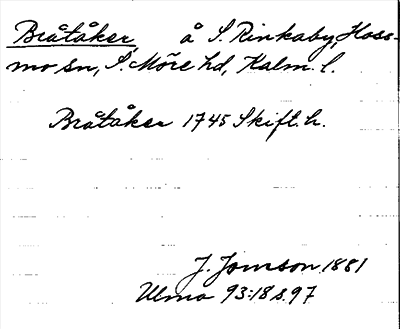 Bråtåker, å S. Rinkaby, Hoss-
mo sn, S. Möre hd, Kalm. l.
Bråtåker 1745 Skift. h.
J. Jonsson 1881
Ulma 93:18 s. 97